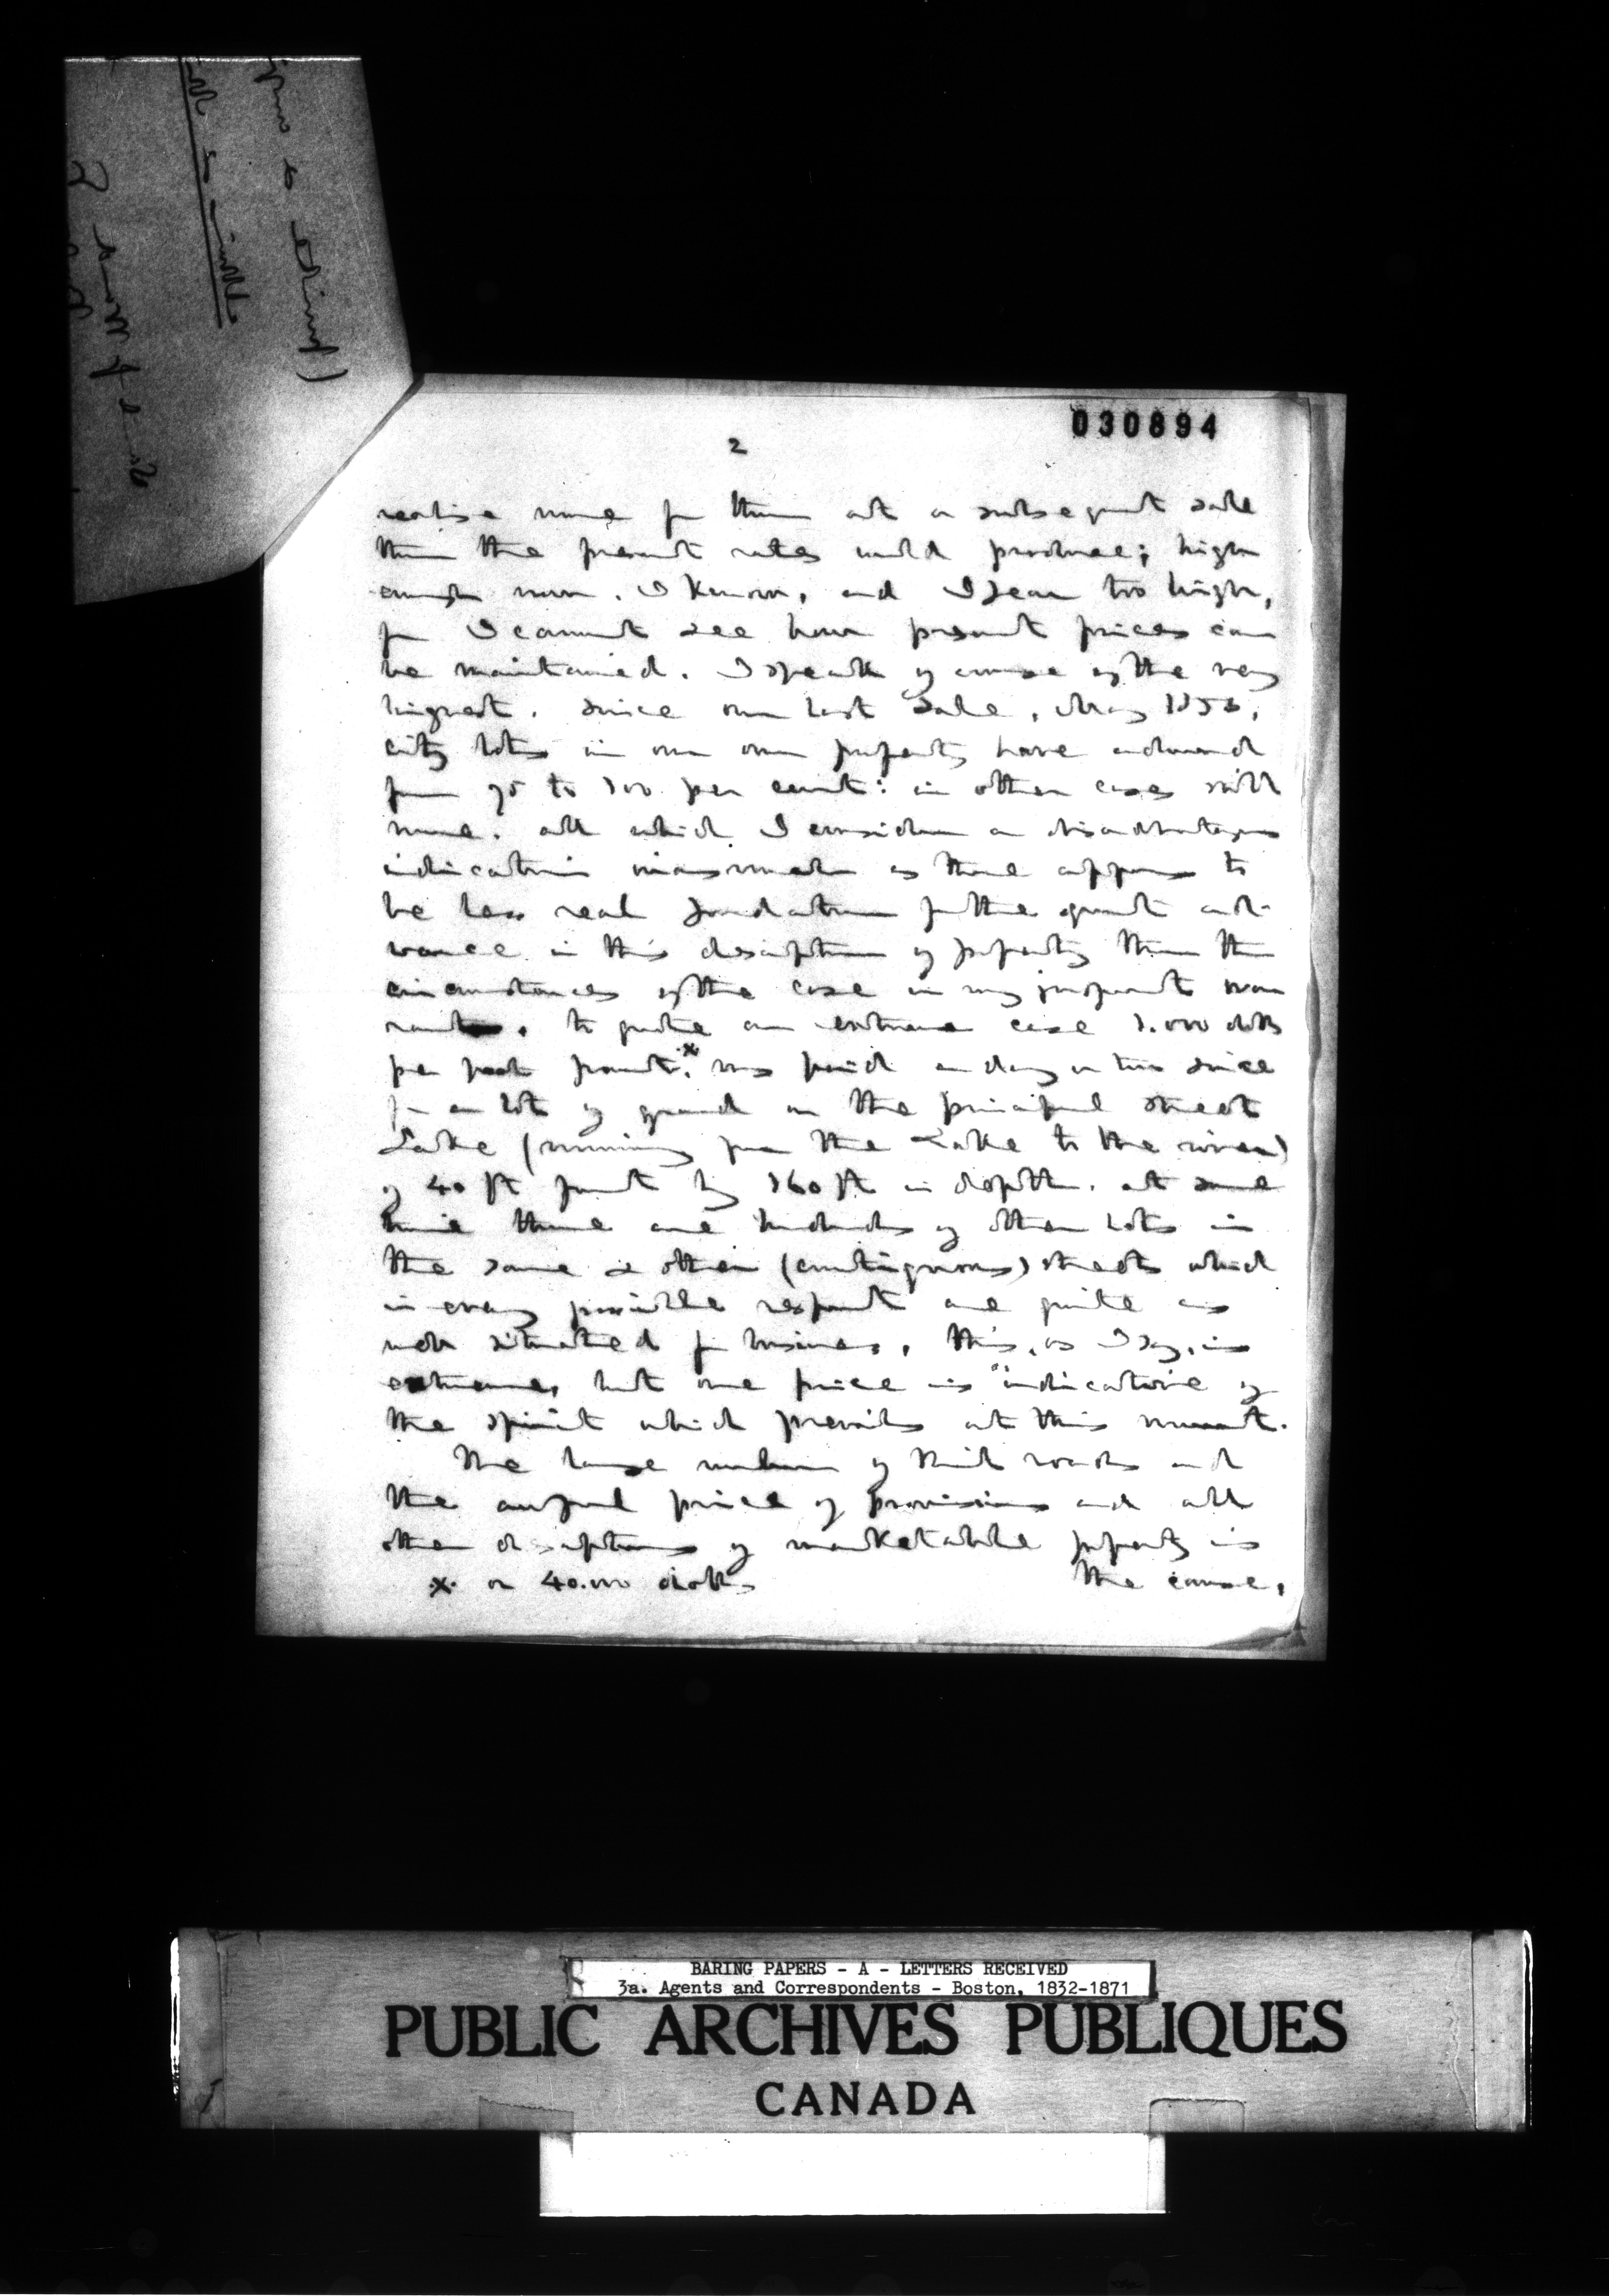 030894
2
realise more for them at a subsequent sale
than the present rates would produce; high
enough now. I know, and I fear too high,
for I cannot see how present prices can
be maintained. I speak of course of the very
highest. Since our last Sale, May 1853,
city lots in our own property have advanced
from 75 to 100 per cent: in other cases still
more. all which I consider a disadvantageous
indication inasmuch as there appears to
be less real foundation for the great ad-
vance in this description of property than the
circumstances of the case in my judgment war
rant. to quote an extreme case 1.000 dolls
per foot front.x was paid a day or two since
for a lot of ground on the principal street
Lake (running from the Lake to the river)
of 40 ft front by 160 ft in depth. at same
time there are hundreds of other lots in
the same & other (contiguous) streets which
in every possible respect are quite as
well situated for business, this, as I say, is
extreme, but one price is indicative of
the spirit which prevails at this moment.
The large number of rail roads and
the awful price of provisions and all
other descriptions of marketable property is
x or 40.000 dolls the cause,
BARING PAPERS - A - LETTERS RECEIVED
3a. Agents and Correspondents - Boston, 1832-1871
PUBLIC ARCHIVES PUBLIQUES
CANADA